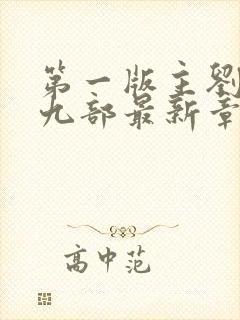 第一版主劉
九部最新章
高中范